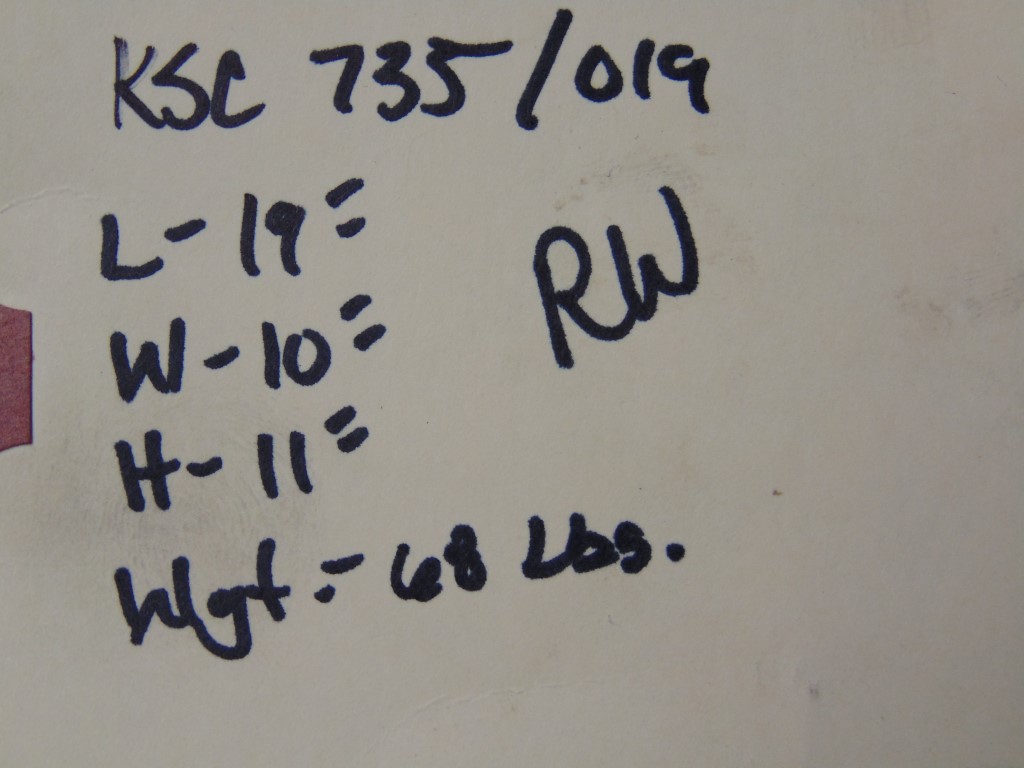 KSC 735/019
L- 19"
RW
W- 10"
H- 11"
Wgt.- 68 Lbs.